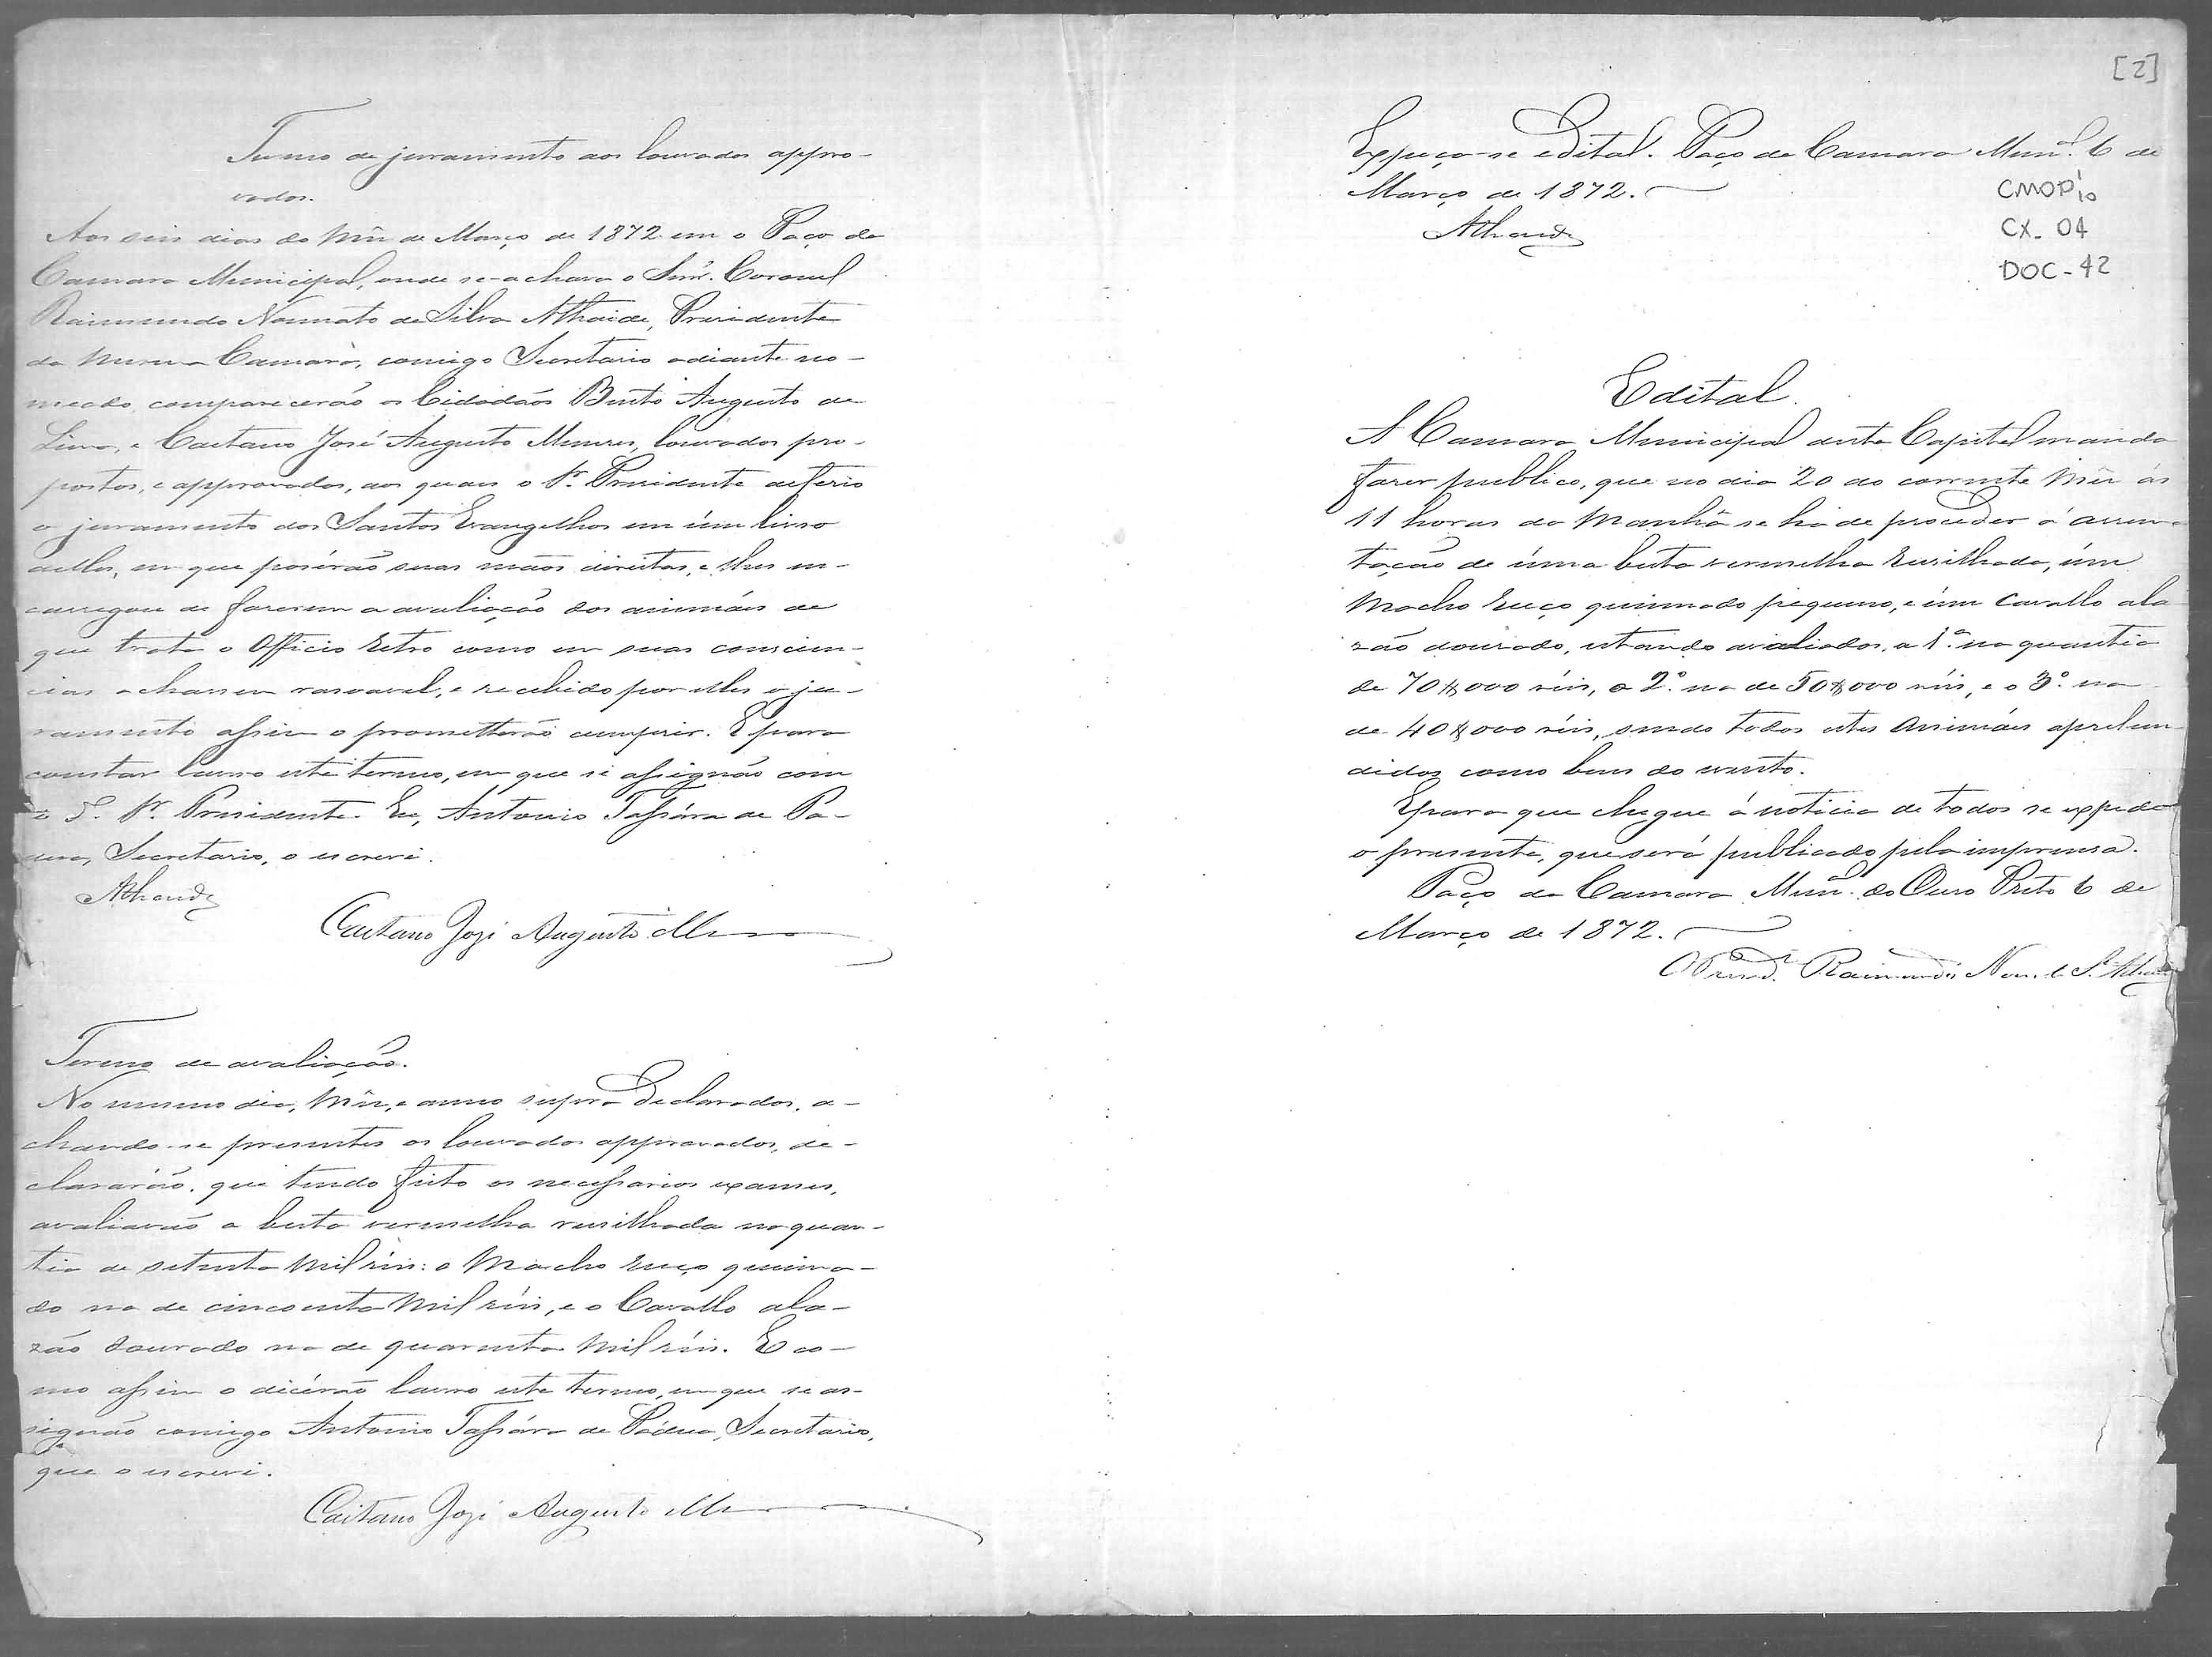 Termo de juramento aos louvados appro-
vados.
Aos seis dias do Mês de Março de 1872 em o Paço da
Camara Municipal, onde se-achava o Snr. Coronel
Raimundo Nonnato da Silva Athaide, Presidente
da mesma Camara, comigo Secretario adiante no-
meado comparecerão os Cidadãos Bento Augusto de
Lima, e Caetano José Augusto Menezes, louvados pro-
postos, e approvados, aos quaes o Sr. Presidente deferio
o juramento dos Santos Evangelhos em úm livro
delles, em que posérão suas mãos direitas, e lhes en-
carregou de fazerem a avaliação dos animáes de
que trata o Officio retro como em suas conscien-
cias achassem rasoavel, e recebido por elles o ju-
ramento assim o prometterão cumprir. E para
constar lavro este termo, em que se assignão com
o S. Sr. Presidente. Eu, Antonio Tassára de Pa-
dua, Secretario, o escrevi.
Athaide
Caetano Joze Augusto
Termo de avaliação.
No mesmo dia, Mês, e anno supra declarados, a-
chando-se presentes os louvados approvados, de-
clararão, que tendo feito os necessarios exames,
avaliavão a besta vermelha rusilhada na quan-
tia de setenta Mil réis: o Macho ruço queima-
do na de cincoenta Mil réis, e o Cavallo ala-
zão dourado na de quarenta Mil réis. E co-
mo assim o dicérão lavro este termo, em que se as-
signão comigo Antonio Tassára de Pádua, Secretario,
que o escrevi.
Caitano Joze Augusto
[2]
Expeça-se edital. Paço da Camara Munal. 6 de
Março de 1872.
Athaide
CMOP
CX. 04
DOC-42
Edital.
A Camara Municipal desta Capital manda
fazer publico, que no dia 20 do corrente Mês ás
11 horas da Manhã se há de proceder á arrema-
tação de úma besta vermelha rusilhada, úm
Macho ruço queimado pequeno, e úm Cavallo ala-
zão dourado, estando avaliados, a 1.ª na quantia
de 70$000 réis, o 2.º na de 50$000 réis, e o 3.º na
de 40$000 réis, sendo todos estes Animáes aprehen-
didos como bens do evento.
E para que chegue á noticia de todos se expede
o presente, que será publicado pela imprensa.
Paço da Camara Mun. do Ouro Preto 6 de
Março de 1872.
O Presid. Raimundo Non. da S.ª Athaide